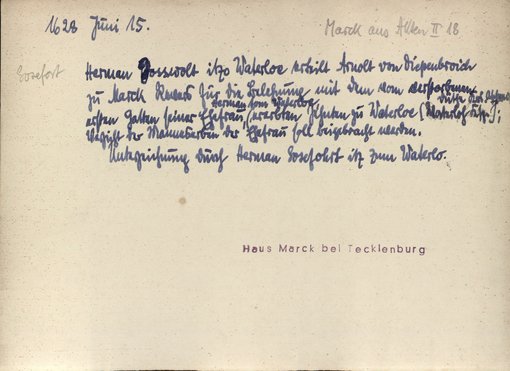 1628 Juni 15.
Marck aus Akten II 18
Gosefort
Herman Gosswolt itzo Waterloe erhilt Arnolt von Diepenbroich
zu Marck Revers für die Belehnung mit dem vom verstorbenen
ersten Gatten seiner Ehefrau, Herman tom Waterloe, ererbten zu Waterloe (Waterlohe
Verzicht der Mannserben der Ehefrau soll beigebracht werden.
Unterzeichnung durch Herman Gosefohrt itz zum Waterlo.
Haus Marck bei Tecklenburg